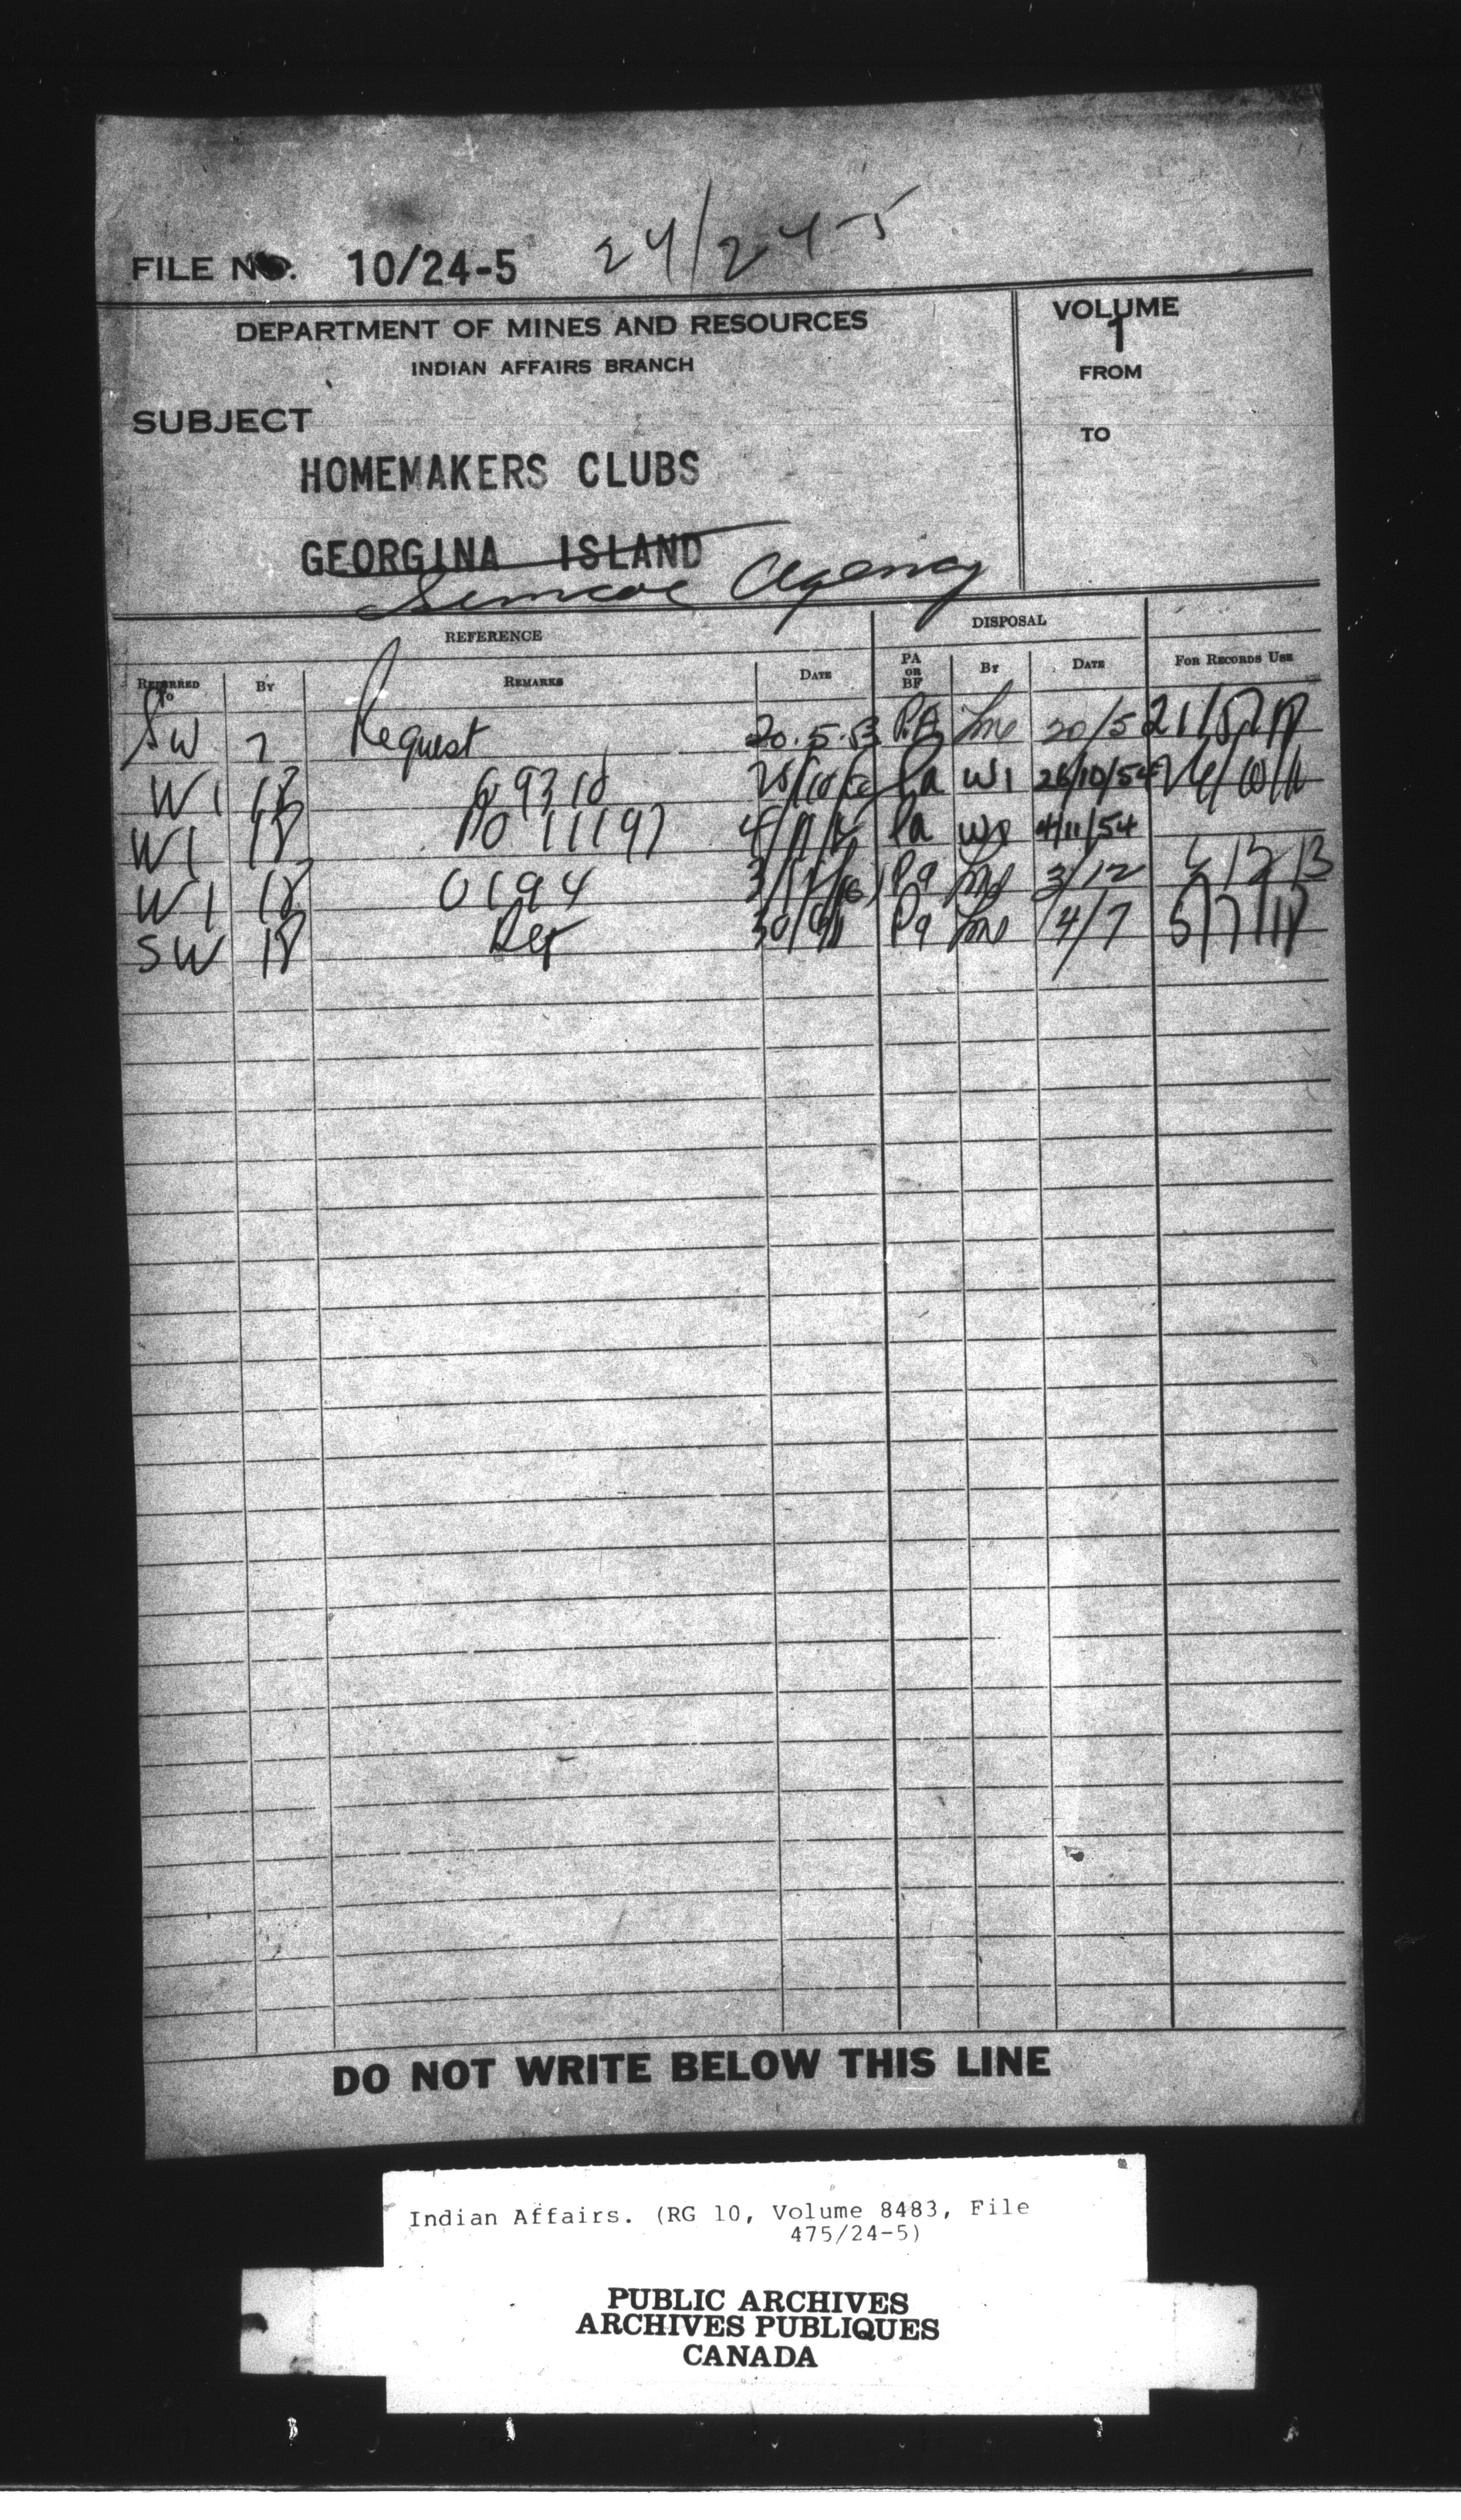 FILE NO. 10/24-5 24/24-5
DEPARTMENT OF MINES AND RESOURCES
INDIAN AFFAIRS BRANCH
VOLUME
1
FROM
TO
SUBJECT
HOMEMAKERS CLUBS
GEORGINA ISLAND
Simcoe Agency
REFERENCE DISPOSAL
REFERRED TO BY REMARKS DATE PA OR BF BY DATE FOR RECORDS USE
SW 7 Request 20.5.53 PA 20/5
W1 18 69310 Pa W1 26/10/54
W1 18 PO 11197 Pa 4/11/54
W1 18 0194 Pa 3/12
SW 18 Pa 4/7 5/7
DO NOT WRITE BELOW THIS LINE
Indian Affairs. (RG 10, Volume 8483, File
475/24-5)
PUBLIC ARCHIVES
ARCHIVES PUBLIQUES
CANADA